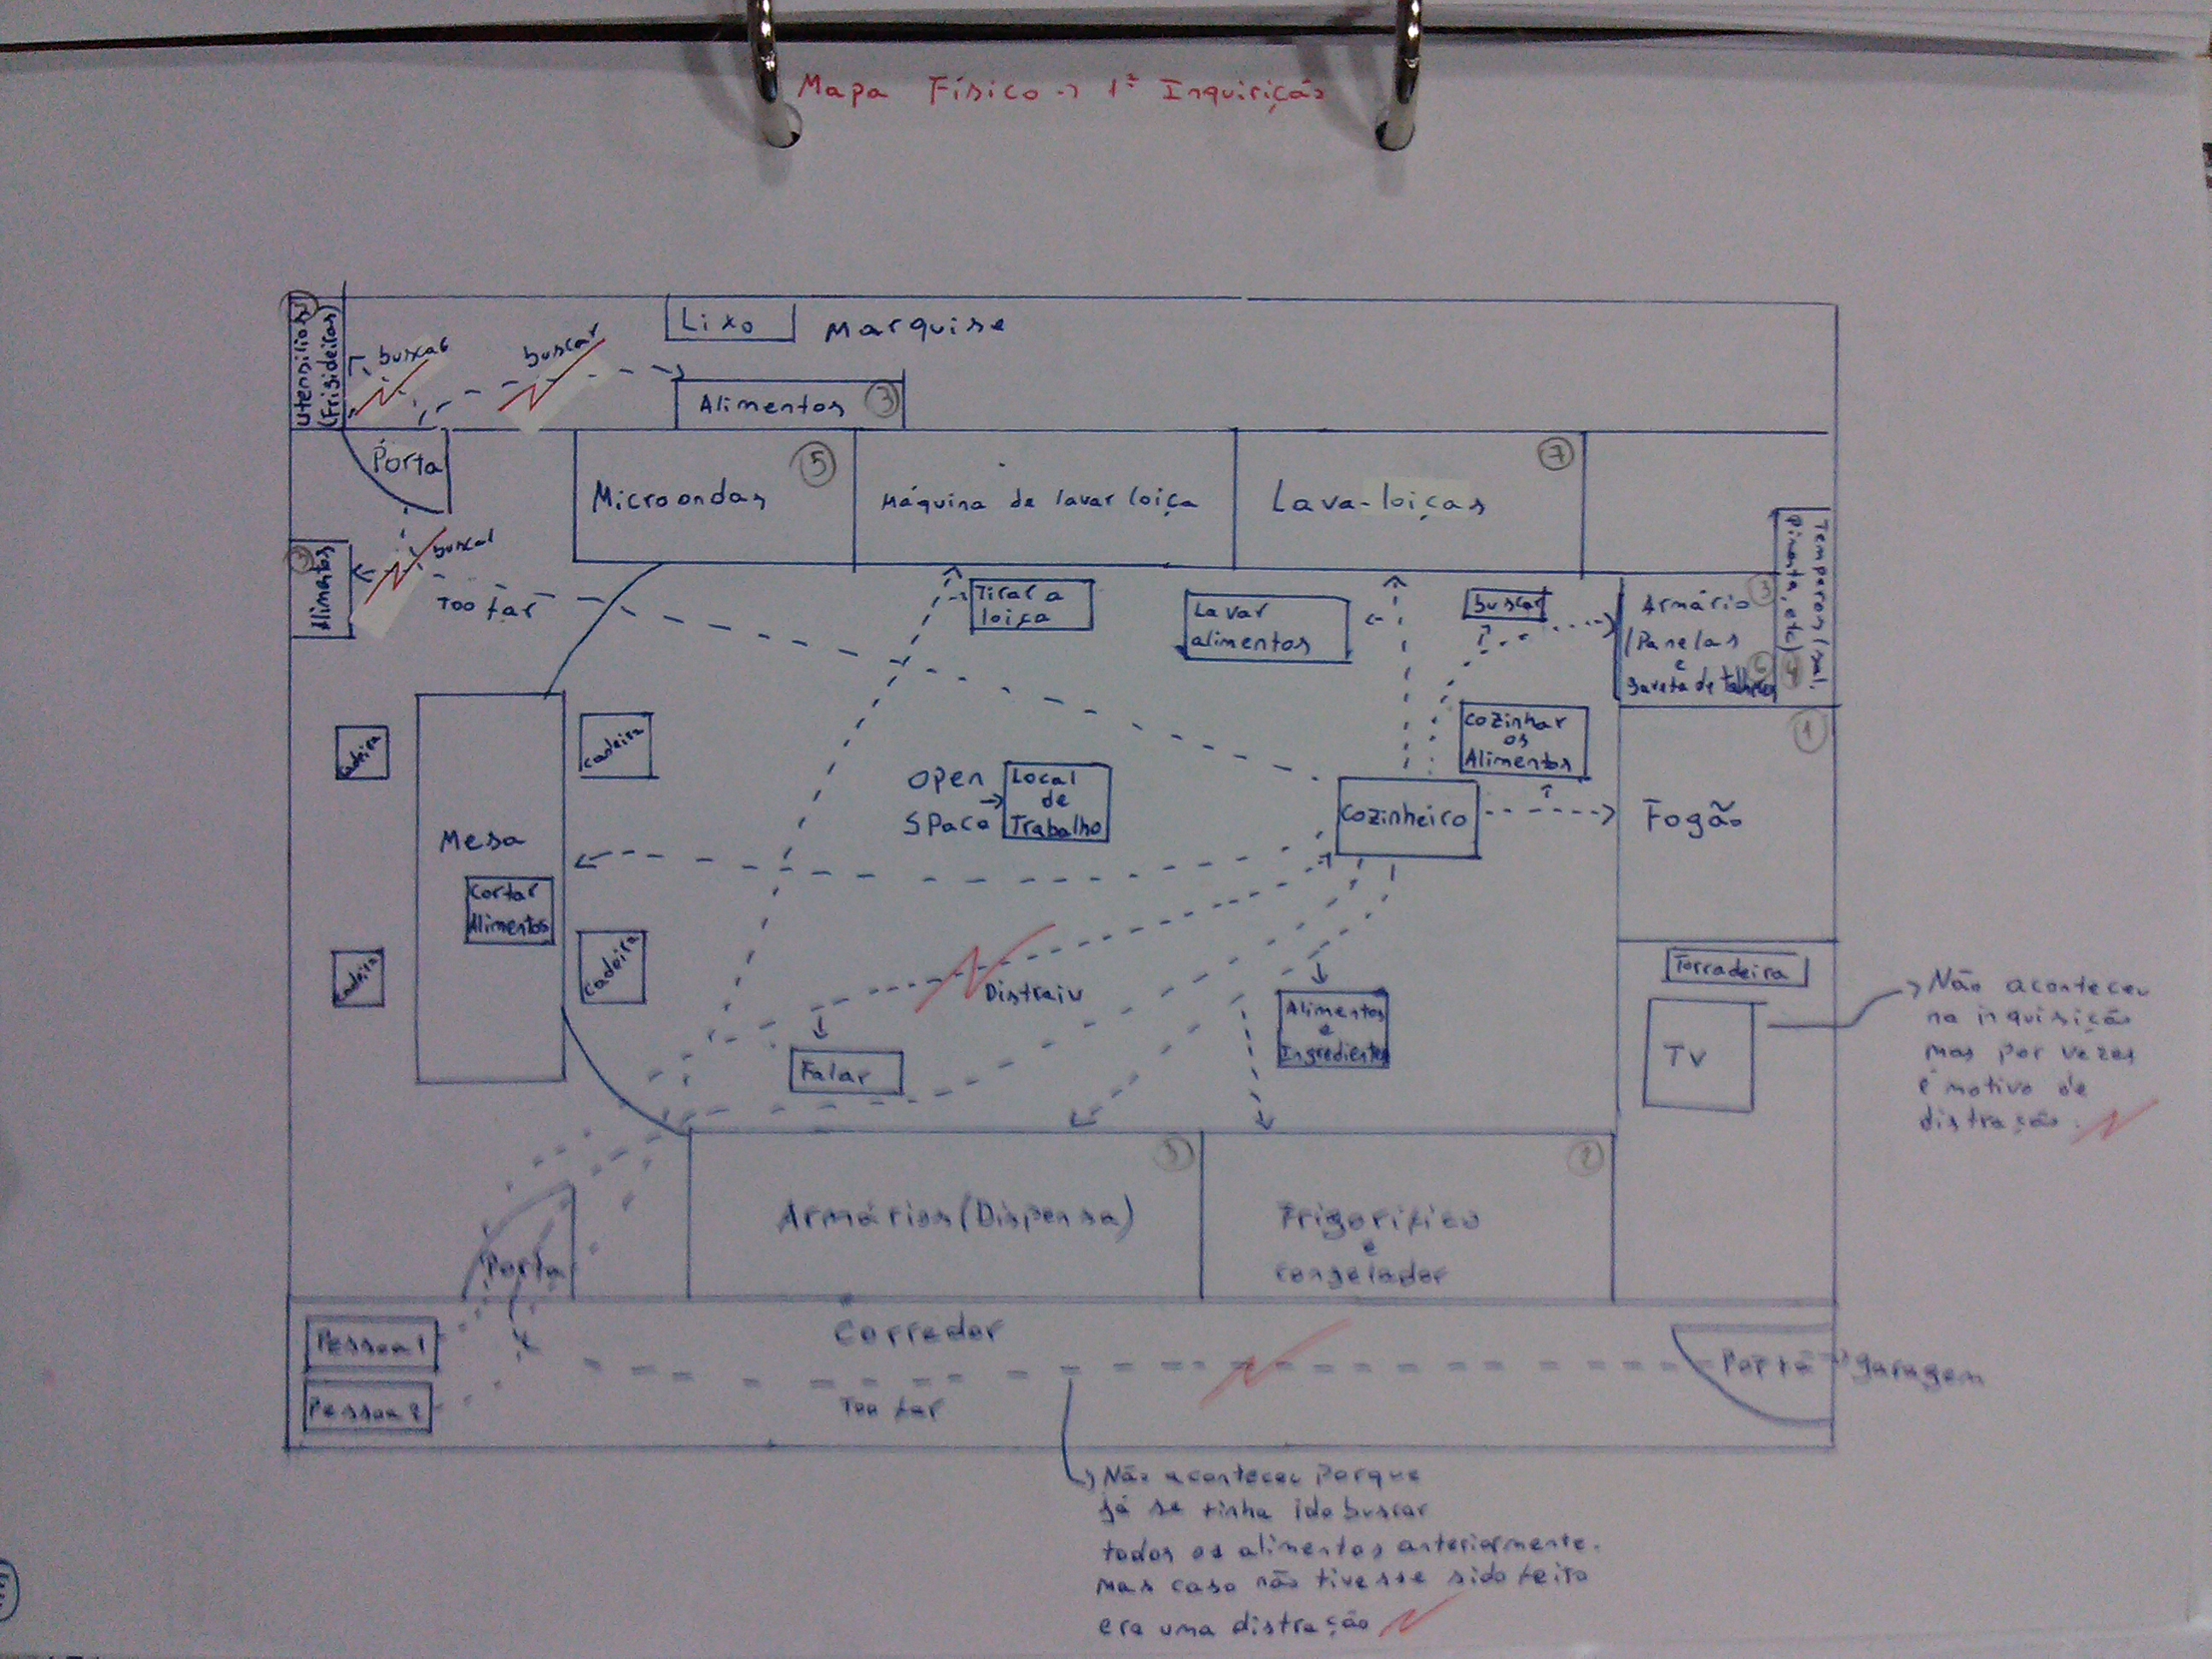 Mapa Físico → 1ª Inquirição
Lixo
Marquise
Utensilios
(Frigideiras)
buscar
buscar
Alimentos
3
Porta
Microondas
5
Máquina de lavar loiça
Lava-loiças
7
Alimentos
buscar
Too far
Tirar a
loiça
Lavar
alimentos
buscar
Armário
3
(Panelas
e
Gaveta de talheres
6
4
Temperos (sal,
Pimenta, etc)
cadeira
cadeira
Cozinhar
os
Alimentos
1
Open
Space
→
Local
de
Trabalho
Cozinheiro
Fogão
Mesa
Cortar
Alimentos
cadeira
cadeira
Distraiu
Falar
Alimentos
e
Ingredientes
Torradeira
TV
Não aconteceu
na inquisição
mas por vezes
é motivo de
distração.
Armários (Dispensa)
3
Frigorifico
e
congelador
2
Porta
Pessoa 1
Pessoa 2
Corredor
Too far
Porta → garagem
Não aconteceu Porque
já se tinha ido buscar
todos os alimentos anteriormente.
Mas caso não tivesse sido feito
era uma distração